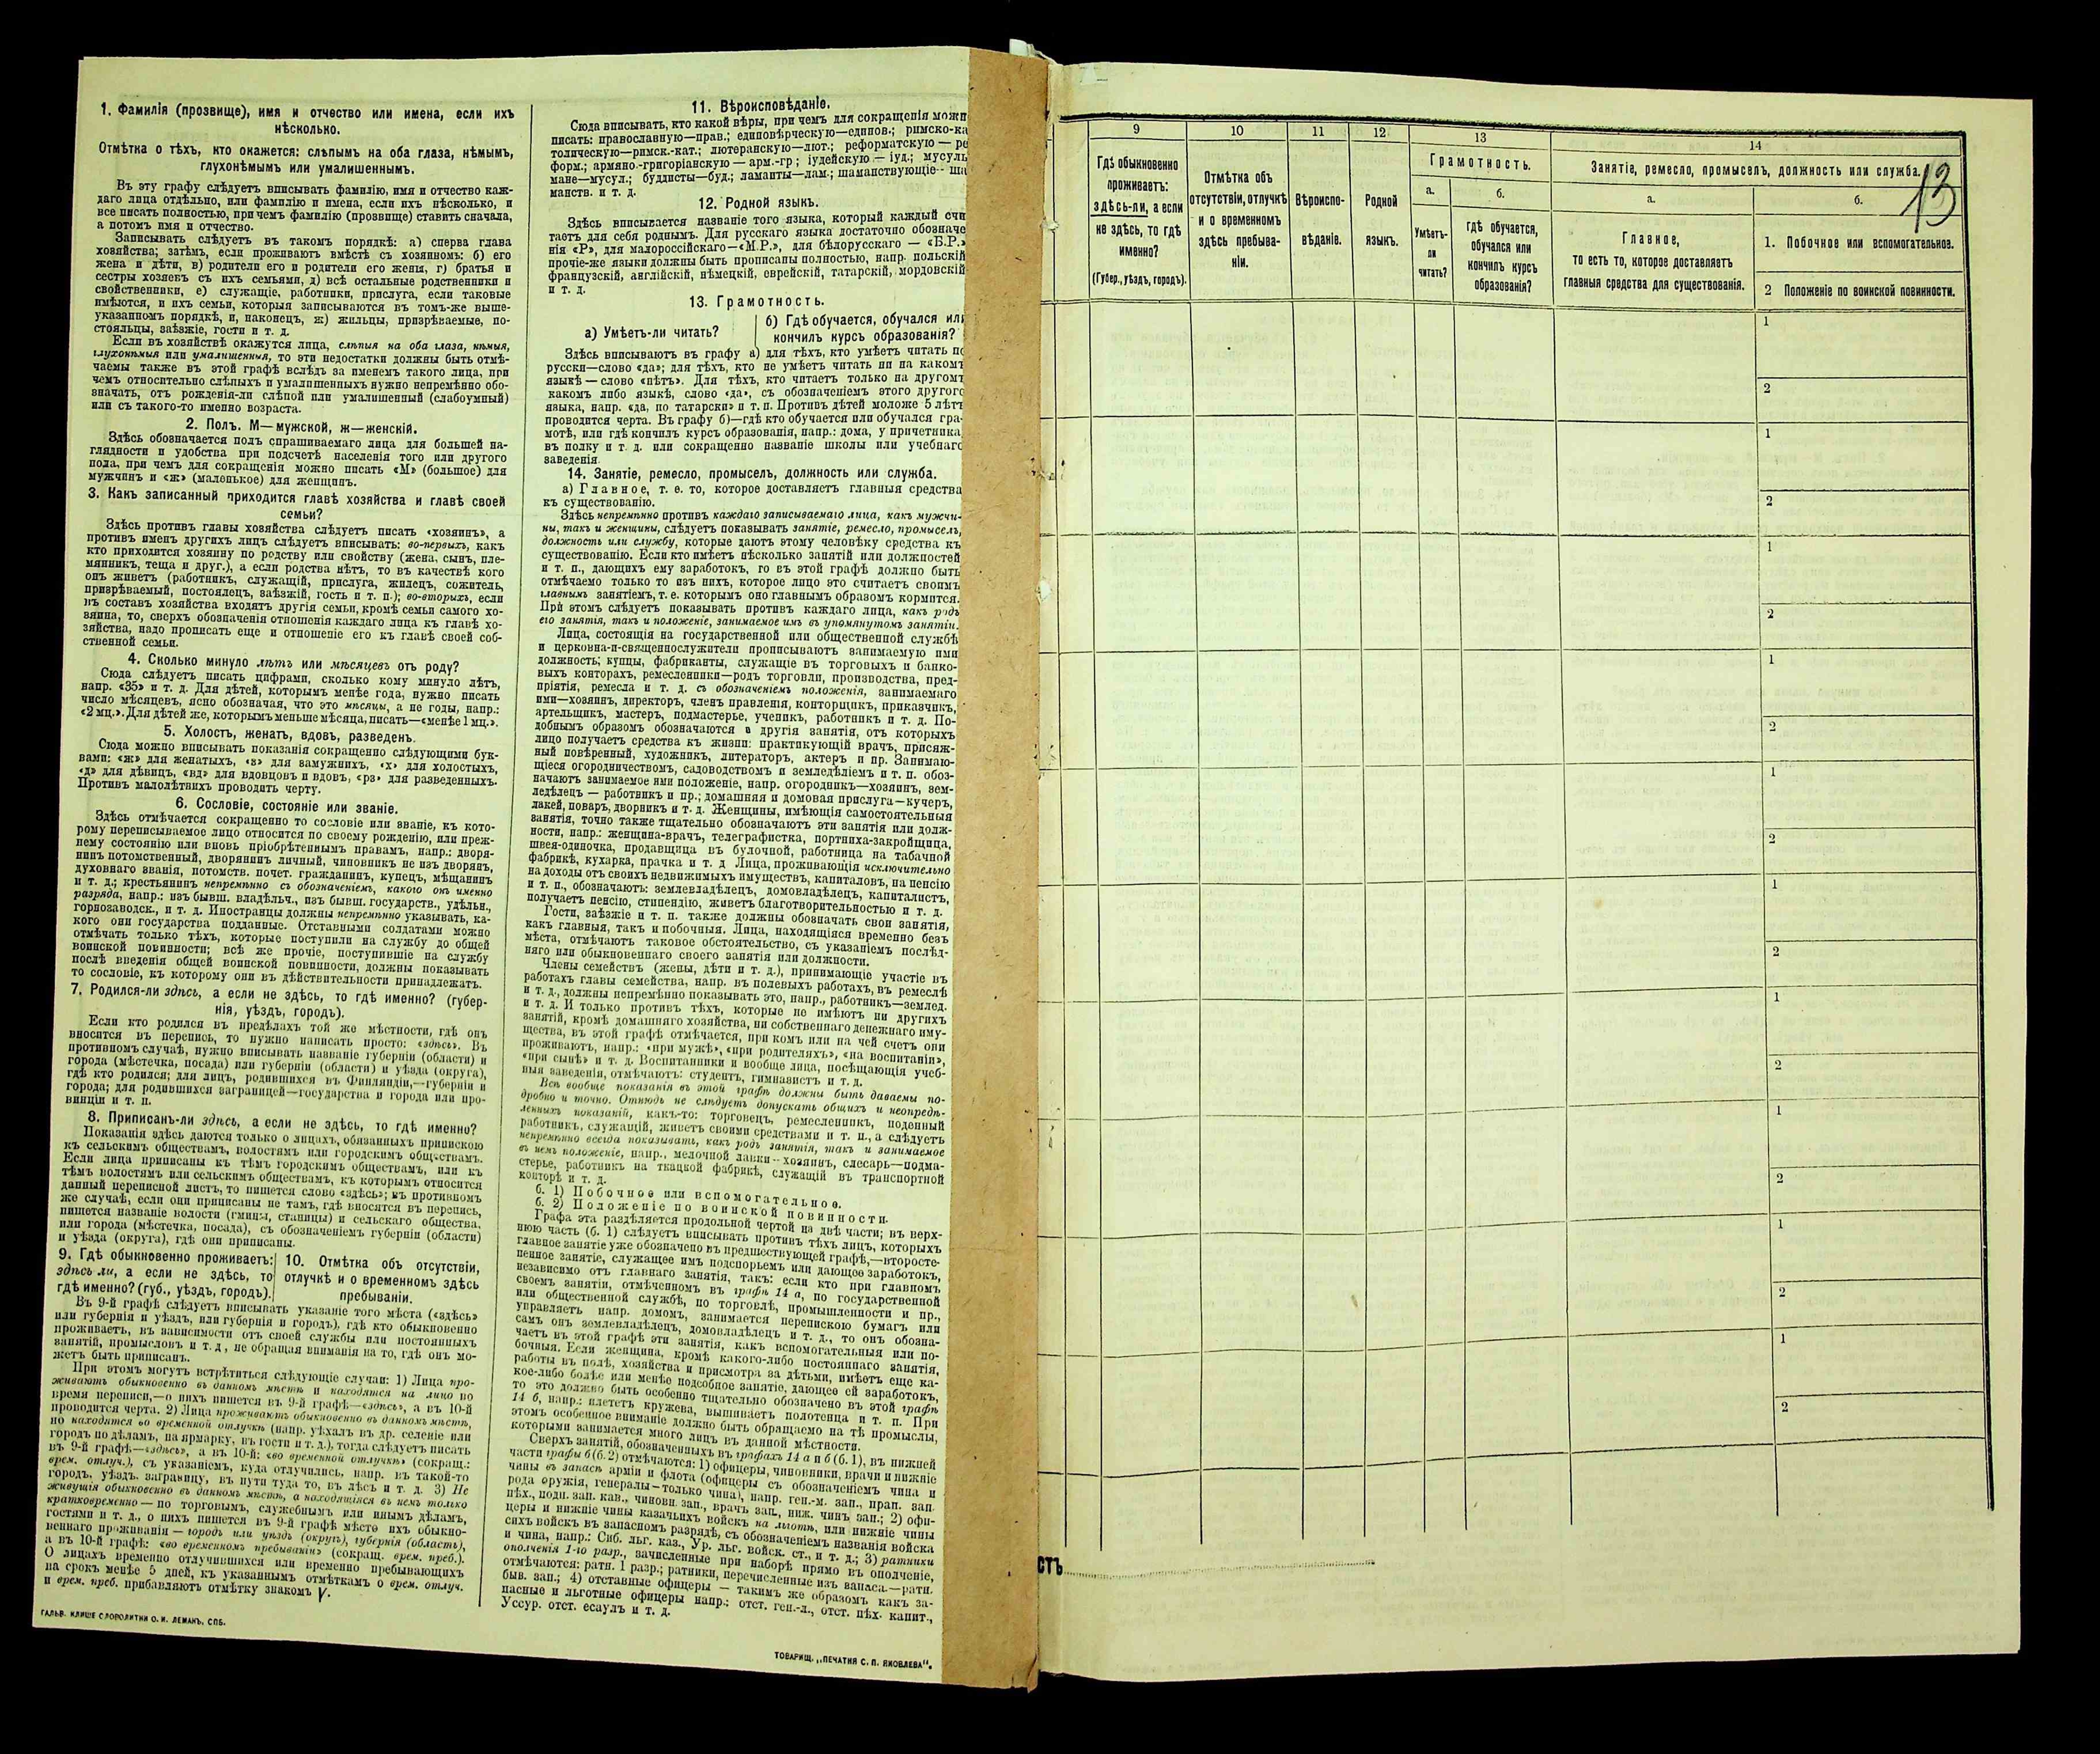 1. Фамилія (прозвище), имя и отчество или имена, если ихъ
нѣсколько.
Отмѣтка о тѣхъ, кто окажется: слѣпымъ на оба глаза, нѣмымъ,
глухонѣмымъ или умалишеннымъ.
Въ эту графу слѣдуетъ вписывать фамилію, имя и отчество каж-
даго лица отдѣльно, или фамилію и имена, если ихъ нѣсколько, и
все писать полностью, при чемъ фамилію (прозвище) ставить сначала,
а потомъ имя и отчество.
Записывать слѣдуетъ въ такомъ порядкѣ: а) сперва глава
хозяйства; затѣмъ, если проживаютъ вмѣстѣ съ хозяиномъ: б) его
жена и дѣти, в) родители его и родители его жены, г) братья и
сестры хозяекъ съ ихъ семьями, д) всѣ остальные родственники и
свойственники, е) служащіе, работники, прислуга, если таковые
имѣются, и ихъ семьи, которыя записываются въ томъ-же выше-
указанномъ порядкѣ, и, наконецъ, ж) жильцы, призрѣваемые, по-
стояльцы, заѣзжіе, гости и т. д.
Если въ хозяйствѣ окажутся лица, слѣпыя на оба глаза, нѣмыя,
глухонѣмыя или умалишенныя, то эти недостатки должны быть отмѣ-
чаемы также въ этой графѣ вслѣдъ за именемъ такого лица, при
чемъ относительно слѣпыхъ и умалишенныхъ нужно непремѣнно обо-
значать, отъ рожденія-ли слѣпой или умалишенный (слабоумный)
или съ такого-то именно возраста.
2. Полъ. М—мужской, ж—женскій.
Здѣсь обозначается полъ спрашиваемаго лица для большей на-
глядности и удобства при подсчетѣ населенія того или другого
пола, при чемъ для сокращенія можно писать «М» (большое) для
мужчинъ и «ж» (маленькое) для женщинъ.
3. Какъ записанный приходится главѣ хозяйства и главѣ своей
семьи?
Здѣсь противъ главы хозяйства слѣдуетъ писать «хозяинъ», а
противъ именъ другихъ лицъ слѣдуетъ вписывать: во-первыхъ, какъ
кто приходится хозяину по родству или свойству (жена, сынъ, пле-
мянникъ, теща и друг.), а если родства нѣтъ, то въ качествѣ кого
онъ живетъ (работникъ, служащій, прислуга, жилецъ, сожитель,
призрѣваемый, постоялецъ, заѣзжій, гость и т. п.); во-вторыхъ, если
въ составъ хозяйства входятъ другія семьи, кромѣ семьи самого хо-
зяина, то, сверхъ обозначенія отношенія каждаго лица къ главѣ хо-
зяйства, надо прописать еще и отношеніе его къ главѣ своей соб-
ственной семьи.
4. Сколько минуло лѣтъ или мѣсяцевъ отъ роду?
Сюда слѣдуетъ писать цифрами, сколько кому минуло лѣтъ,
напр. «35» и т. д. Для дѣтей, которымъ менѣе года, нужно писать
число мѣсяцевъ, ясно обозначая, что это мѣсяцы, а не годы, напр.:
«2 мц.». Для дѣтей же, которымъ меньше мѣсяца, писать—«менѣе 1 мц.».
5. Холостъ, женатъ, вдовъ, разведенъ.
Сюда можно вписывать показанія сокращенно слѣдующими бук-
вами: «ж» для женатыхъ, «з» для замужнихъ, «х» для холостыхъ,
«д» для дѣвицъ, «вд» для вдовцовъ и вдовъ, «рз» для разведенныхъ.
Противъ малолѣтнихъ проводить черту.
6. Сословіе, состояніе или званіе.
Здѣсь отмѣчается сокращенно то сословіе или званіе, къ кото-
рому переписываемое лицо относится по своему рожденію, или преж-
нему состоянію или вновь пріобрѣтеннымъ правамъ, напр.: дворя-
нинъ потомственный, дворянинъ личный, чиновникъ не изъ дворянъ,
духовнаго званія, потомств. почет. гражданинъ, купецъ, мѣщанинъ
и т. д.; крестьянинъ непремѣнно съ обозначеніемъ, какого онъ именно
разряда, напр.: изъ бывш. владѣльч., изъ бывш. государств., удѣльн.,
горнозаводск., и т. д. Иностранцы должны непремѣнно указывать, ка-
кого они государства подданные. Отставными солдатами можно
отмѣчать только тѣхъ, которые поступили на службу до общей
воинской повинности; всѣ же прочіе, поступившіе на службу
послѣ введенія общей воинской повинности, должны показывать
то сословіе, къ которому они въ дѣйствительности принадлежатъ.
7. Родился-ли здѣсь, а если не здѣсь, то гдѣ именно? (губер-
нія, уѣздъ, городъ).
Если кто родился въ предѣлахъ той же мѣстности, гдѣ онъ
вносится въ перепись, то нужно написать просто: «здѣсь». Въ
противномъ случаѣ, нужно вписывать названіе губерніи (области) и
города (мѣстечка, посада) или губерніи (области) и уѣзда (округа),
гдѣ кто родился; для лицъ, родившихся въ Финляндіи,—губерніи и
города; для родившихся заграницей—государства и города или про-
винціи и т. п.
8. Приписанъ-ли здѣсь, а если не здѣсь, то гдѣ именно?
Показанія здѣсь даются только о лицахъ, обязанныхъ припискою
къ сельскимъ обществамъ, волостямъ или городскимъ обществамъ.
Если лица приписаны къ тѣмъ городскимъ обществамъ, или къ
тѣмъ волостямъ или сельскимъ обществамъ, къ которымъ относится
данный переписной листъ, то пишется слово «здѣсь»; въ противномъ
же случаѣ, если они приписаны не тамъ, гдѣ вносятся въ перепись,
пишется названіе волости (гмины, станицы) и сельскаго общества,
или города (мѣстечка, посада), съ обозначеніемъ губерніи (области)
и уѣзда (округа), гдѣ они приписаны.
9. Гдѣ обыкновенно проживаетъ:
здѣсь ли, а если не здѣсь, то
гдѣ именно? (губ., уѣздъ, городъ).
10. Отмѣтка объ отсутствіи,
отлучкѣ и о временномъ здѣсь
пребываніи.
Въ 9-й графѣ слѣдуетъ вписывать указаніе того мѣста («здѣсь»
или губернія и уѣздъ, или губернія и городъ), гдѣ кто обыкновенно
проживаетъ, въ зависимости отъ своей службы или постоянныхъ
занятій, промысловъ и т. д., не обращая вниманія на то, гдѣ онъ мо-
жетъ быть приписанъ.
При этомъ могутъ встрѣтиться слѣдующіе случаи: 1) Лица про-
живаютъ обыкновенно въ данномъ мѣстѣ и находятся на лицо во
время переписи,—о нихъ пишется въ 9-й графѣ—«здѣсь», а въ 10-й
проводится черта. 2) Лица проживаютъ обыкновенно въ данномъ мѣстѣ,
но находятся во временной отлучкѣ (напр. уѣхалъ въ др. селеніе или
городъ по дѣламъ, на ярмарку, въ гости и т. д.), тогда слѣдуетъ писать
въ 9-й графѣ—«здѣсь», а въ 10-й: «во временной отлучкѣ» (сокращ.:
врем. отлуч.), съ указаніемъ, куда отлучились, напр. въ такой-то
городъ, уѣздъ, заграницу, въ пути туда то, въ лѣсъ и т. д. 3) Не
живущія обыкновенно въ данномъ мѣстѣ, а находящіяся въ немъ только
кратковременно — по торговымъ, служебнымъ или инымъ дѣламъ,
гостями и т. д., о нихъ пишется въ 9-й графѣ мѣсто ихъ обыкно-
веннаго проживанія — городъ или уѣздъ (округъ), губернія (область),
а въ 10-й графѣ: «во временномъ пребываніи» (сокращ. врем. преб.).
О лицахъ временно отлучившихся или временно пребывающихъ
на срокъ менѣе 5 дней, къ указаннымъ отмѣткамъ о врем. отлуч.
и врем. преб. прибавляютъ отмѣтку знакомъ V.
ГАЛЬВ. КЛИШЕ СЛОВОЛИТНИ О. И. ЛЕМАНЪ, СПБ.
11. Вѣроисповѣданіе.
Сюда вписывать, кто какой вѣры, при чемъ для сокращенія можн
писать: православную—прав.; единовѣрческую—единов.; римско-ка
толическую—римск.-кат.; лютеранскую—лют.; реформатскую — ре
форм.; армяно.-григоріанскую — арм.-гр; іудейскую — іуд.; мусуль
мане—мусул.; буддисты—буд.; ламаиты—лам.; шаманствующіе— ша
манств. и т. д.
12. Родной языкъ.
Здѣсь вписывается названіе того языка, который каждый счи
таетъ для себя роднымъ. Для русскаго языка достаточно обозначе
нія «Р», для малороссійскаго—«М.Р.», для бѣлорусскаго — «Б.Р.»
прочіе-же языки должны быть прописаны полностью, напр. польскій
французскій, англійскій, нѣмецкій, еврейскій, татарскій, мордовскій
и т. д.
13. Грамотность.
а) Умѣетъ-ли читать?
б) Гдѣ обучается, обучался или
кончилъ курсъ образованія?
Здѣсь вписываютъ въ графу а) для тѣхъ, кто умѣетъ читать по
русски—слово «да»; для тѣхъ, кто не умѣетъ читать ни на какомъ
языкѣ — слово «нѣтъ». Для тѣхъ, кто читаетъ только на другомъ
какомъ либо языкѣ, слово «да», съ обозначеніемъ этого другого
языка, напр. «да, по татарски» и т. п. Противъ дѣтей моложе 5 лѣтъ
проводится черта. Въ графу б)—гдѣ кто обучается или обучался гра-
мотѣ, или гдѣ кончилъ курсъ образованія, напр.: дома, у причетника,
въ полку и т. д. или сокращенно названіе школы или учебнаго
заведенія
14. Занятіе, ремесло, промыселъ, должность или служба.
а) Главное, т. е. то, которое доставляетъ главныя средства
къ существованію.
Здѣсь непремѣнно противъ каждаго записываемаго лица, какъ мужчи-
ны, такъ и женщины, слѣдуетъ показывать занятіе, ремесло, промыселъ,
должность или службу, которые даютъ этому человѣку средства къ
существованію. Если кто имѣетъ нѣсколько занятій или должностей
и т. п., дающихъ ему заработокъ, то въ этой графѣ должно быть
отмѣчаемо только то изъ нихъ, которое лицо это считаетъ своимъ
главнымъ занятіемъ, т. е. которымъ оно главнымъ образомъ кормится.
При этомъ слѣдуетъ показывать противъ каждаго лица, какъ родъ
его занятія, такъ и положеніе, занимаемое имъ въ упомянутомъ занятіи.
Лица, состоящія на государственной или общественной службѣ
и церковно-и-священнослужители прописываютъ занимаемую ими
должность; купцы, фабриканты, служащіе въ торговыхъ и банко-
выхъ конторахъ, ремесленники—родъ торговли, производства, пред-
пріятія, ремесла и т. д. съ обозначеніемъ положенія, занимаемаго
ими—хозяинъ, директоръ, членъ правленія, конторщикъ, приказчикъ,
артельщикъ, мастеръ, подмастерье, ученикъ, работникъ и т. д. По-
добнымъ образомъ обозначаются и другія занятія, отъ которыхъ
лицо получаетъ средства къ жизни: практикующій врачъ, присяж-
ный повѣренный, художникъ, литераторъ, актеръ и пр. Занимаю-
щіеся огородничествомъ, садоводствомъ и земледѣліемъ и т. п. обоз-
начаютъ занимаемое ими положеніе, напр. огородникъ—хозяинъ, зем-
ледѣлецъ — работникъ и пр.; домашняя и домовая прислуга—кучеръ,
лакей, поваръ, дворникъ и т. д. Женщины, имѣющія самостоятельныя
занятія, точно также тщательно обозначаютъ эти занятія или долж-
ности, напр.: женщина-врачъ, телеграфистка, портниха-закройщица,
швея-одиночка, продавщица въ булочной, работница на табачной
фабрикѣ, кухарка, прачка и т. д Лица, проживающія исключительно
на доходы отъ своихъ недвижимыхъ имуществъ, капиталовъ, на пенсію
и т. п., обозначаютъ: землевладѣлецъ, домовладѣлецъ, капиталистъ,
получаетъ пенсію, стипендію, живетъ благотворительностью и т. д.
Гости, заѣзжіе и т. п. также должны обозначать свои занятія,
какъ главныя, такъ и побочныя. Лица, находящіяся временно безъ
мѣста, отмѣчаютъ таковое обстоятельство, съ указаніемъ послѣд-
няго или обыкновеннаго своего занятія или должности.
Члены семействъ (жены, дѣти и т. д.), принимающіе участіе въ
работахъ главы семейства, напр. въ полевыхъ работахъ, въ ремеслѣ
и т. д., должны непремѣнно показывать это, напр., работникъ—землед.
и т. д. И только противъ тѣхъ, которые не имѣютъ ни другихъ
занятій, кромѣ домашняго хозяйства, ни собственнаго денежнаго иму-
щества, въ этой графѣ отмѣчается, при комъ или на чей счетъ они
проживаютъ, напр.: «при мужѣ», «при родителяхъ», «на воспитаніи»,
«при сынѣ» и т. д. Воспитанники и вообще лица, посѣщающія учеб-
ныя заведенія, отмѣчаютъ: студентъ, гимназистъ и т. д.
Всѣ вообще показанія въ этой графѣ должны быть даваемы по-
дробно и точно. Отнюдь не слѣдуетъ допускать общихъ и неопредѣ-
ленныхъ показаній, какъ-то: торговецъ, ремесленникъ, поденный
работникъ, служащій, живетъ своими средствами и т. п., а слѣдуетъ
непремѣнно всегда показывать, какъ родъ занятія, такъ и занимаемое
въ немъ положеніе, напр., мелочной лавки—хозяинъ, слесарь—подма-
стерье, работникъ на ткацкой фабрикѣ, служащій въ транспортной
конторѣ и т. д.
б. 1) Побочное или вспомогательное.
б. 2) Положеніе по воинской повинности.
Графа эта раздѣляется продольной чертой на двѣ части; въ верх-
нюю часть (б. 1) слѣдуетъ вписывать противъ тѣхъ лицъ, которыхъ
главное занятіе уже обозначено въ предшествующей графѣ,—второсте-
пенное занятіе, служащее имъ подспорьемъ или дающее заработокъ,
независимо отъ главнаго занятія, такъ: если кто при главномъ
своемъ занятіи, отмѣченномъ въ графѣ 14 а, по государственной
или общественной службѣ, по торговлѣ, промышленности и пр.,
управляетъ напр. домомъ, занимается перепискою бумагъ или
самъ онъ землевладѣлецъ, домовладѣлецъ и т. д., то онъ обозна-
чаетъ въ этой графѣ эти занятія, какъ вспомогательныя или по-
бочныя. Если женщина, кромѣ какого-либо постояннаго занятія,
работы въ полѣ, хозяйства и присмотра за дѣтьми, имѣетъ еще ка-
кое-либо болѣе или менѣе подсобное занятіе, дающее ей заработокъ,
то это должно быть особенно тщательно обозначено въ этой графѣ
14 б, напр.: плететъ кружева, вышиваетъ полотенца и т. п. При
этомъ особенное вниманіе должно быть обращаемо на тѣ промыслы,
которыми занимается много лицъ въ данной мѣстности.
Сверхъ занятій, обозначенныхъ въ графахъ 14 а и б (б. 1), въ нижней
части графы б (б. 2) отмѣчаются: 1) офицеры, чиновники, врачи и нижніе
чины въ запасѣ арміи и флота (офицеры съ обозначеніемъ чина и
рода оружія, генералы—только чина), напр. ген.-м. зап., прап. зап.
пѣх., подп. зап. кав., чиновн. зап., врачъ зап., ниж. чинъ зап.; 2) офи-
церы и нижніе чины казачьихъ войскъ на льготѣ, или нижніе чины
сихъ войскъ въ запасномъ разрядѣ, съ обозначеніемъ названія войска
и чина, напр.: Сиб. льг. каз., Ур. льг. войск. ст., и т. д.; 3) ратники
ополченія 1-го разр., зачисленные при наборѣ прямо въ ополченіе,
отмѣчаются: ратн. 1 разр.; ратники, перечисленные изъ запаса.—ратн.
быв. зап.; 4) отставные офицеры — такимъ же образомъ какъ за-
пасные и льготные офицеры напр.: отст. ген.-л., отст. пѣх. капит.,
Уссур. отст. есаулъ и т. д.
ТОВАРИЩ. „ПЕЧАТНЯ С. П. ЯКОВЛЕВА“.
9
10
11
12
13
14
Гдѣ обыкновенно
проживаетъ:
здѣсь-ли, а если
не здѣсь, то гдѣ
именно?
(Губер., уѣздъ, городъ).
Отмѣтка объ
отсутствіи, отлучкѣ
и о временномъ
здѣсь пребыва-
ніи.
Вѣроиспо-
вѣданіе.
Родной
языкъ.
Грамотность.
а.
б.
Умѣетъ-
ли
читать?
гдѣ обучается,
обучался или
кончилъ курсъ
образованія?
Занятіе, ремесло, промыселъ, должность или служба.
13
а.
б.
Главное,
то есть то, которое доставляетъ
главныя средства для существованія.
1. Побочное или вспомогательное.
2 Положеніе по воинской повинности.
1
2
1
2
1
2
1
2
1
2
1
2
1
2
1
2
1
2
1
2
сть